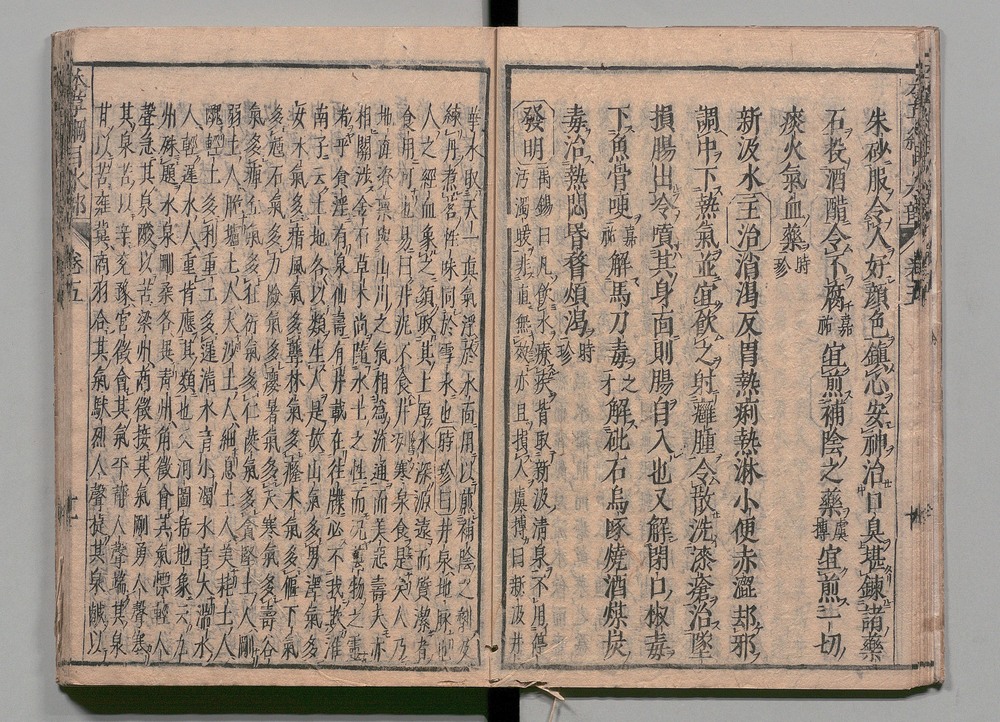 朱砂服令人好顔色鎭心安神治口臭堪鍊諸藥
石投酒醋令不腐嘉祐宜煎補陰之藥虞摶宜煎一切
痰火氣血藥時珍
新汲水主治消渇反胃熱痢熱淋小便赤澀却邪
調中下熱氣並宜飲之射癰腫令散洗漆瘡治墜
損腸出冷噴其身面則腸自入也又解閉口椒毒
下魚骨哽嘉祐解馬刀毒之才解砒石烏喙燒酒煤炭
毒治熱悶昏瞀煩渇時珍
發明禹錫曰凡飲水療疾皆取新汲清泉不用停
汚濁暖非直無效亦且損人虞摶曰新汲井
華水取天一真氣浮於水面用以煎補陰之劑及
練丹煮茗性味同於雪水也時珍曰井泉地脉也
人之經血象之須取其上原水深源遠而質潔者
食用可也易曰井泥不食井冽寒泉食是矣人乃
地産資禀與山川之氣相為流通而美惡壽夭亦
相關渉金石草木尚隨水土之性而況萬物之靈
者乎食淫有泉仙壽有丹載在往牒必不我欺淮
南子云土地各以類生人是故山氣多男澤氣多
女水氣多瘖風氣多聾林氣多癃木氣多傴下氣
多尰石氣多力險氣多癭暑氣多夭寒氣多壽谷
氣多痺丘氣多狂衍氣多仁陵氣多貪堅土人剛
弱土人脆壚土人大沙土人細息土人美耗土人
醜輕土多利重土多遲清水音小濁水音大湍水
人輕遲水人重皆應其類也又河圖括地象云九
州殊題水泉剛柔各異青州角徵會其氣慓輕人
聲急其泉酸以苦梁州商徵接其氣剛勇人聲塞
其泉苦以辛兖豫宮徵會其氣平靜人聲端其泉
甘以苦雍冀商羽合其氣駃烈人聲捷其泉鹹以
本草綱目水部 卷五 十